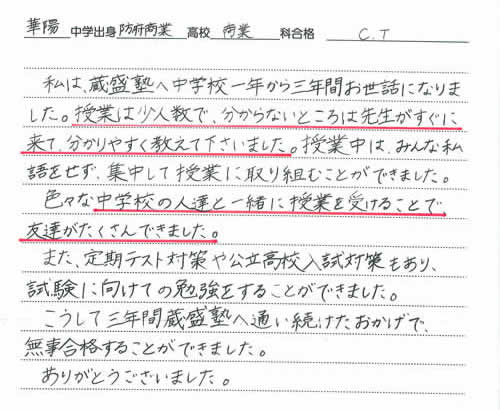 華陽 中学出身 防府商業 高校 商業 科合格 C.T
私は、蔵盛塾へ中学校一年から三年間お世話になりま
した。授業は少人数で、分からないところは先生がすぐに
来て、分かりやすく教えて下さいました。授業中は、みんな私
語をせず、集中して授業に取り組むことができました。
色々な中学校の人達と一緒に授業を受けることで
友達がたくさんできました。
また、定期テスト対策や公立高校入試対策もあり、
試験に向けての勉強をすることができました。
こうして三年間蔵盛塾へ通い続けたおかげで、
無事合格することができました。
ありがとうございました。